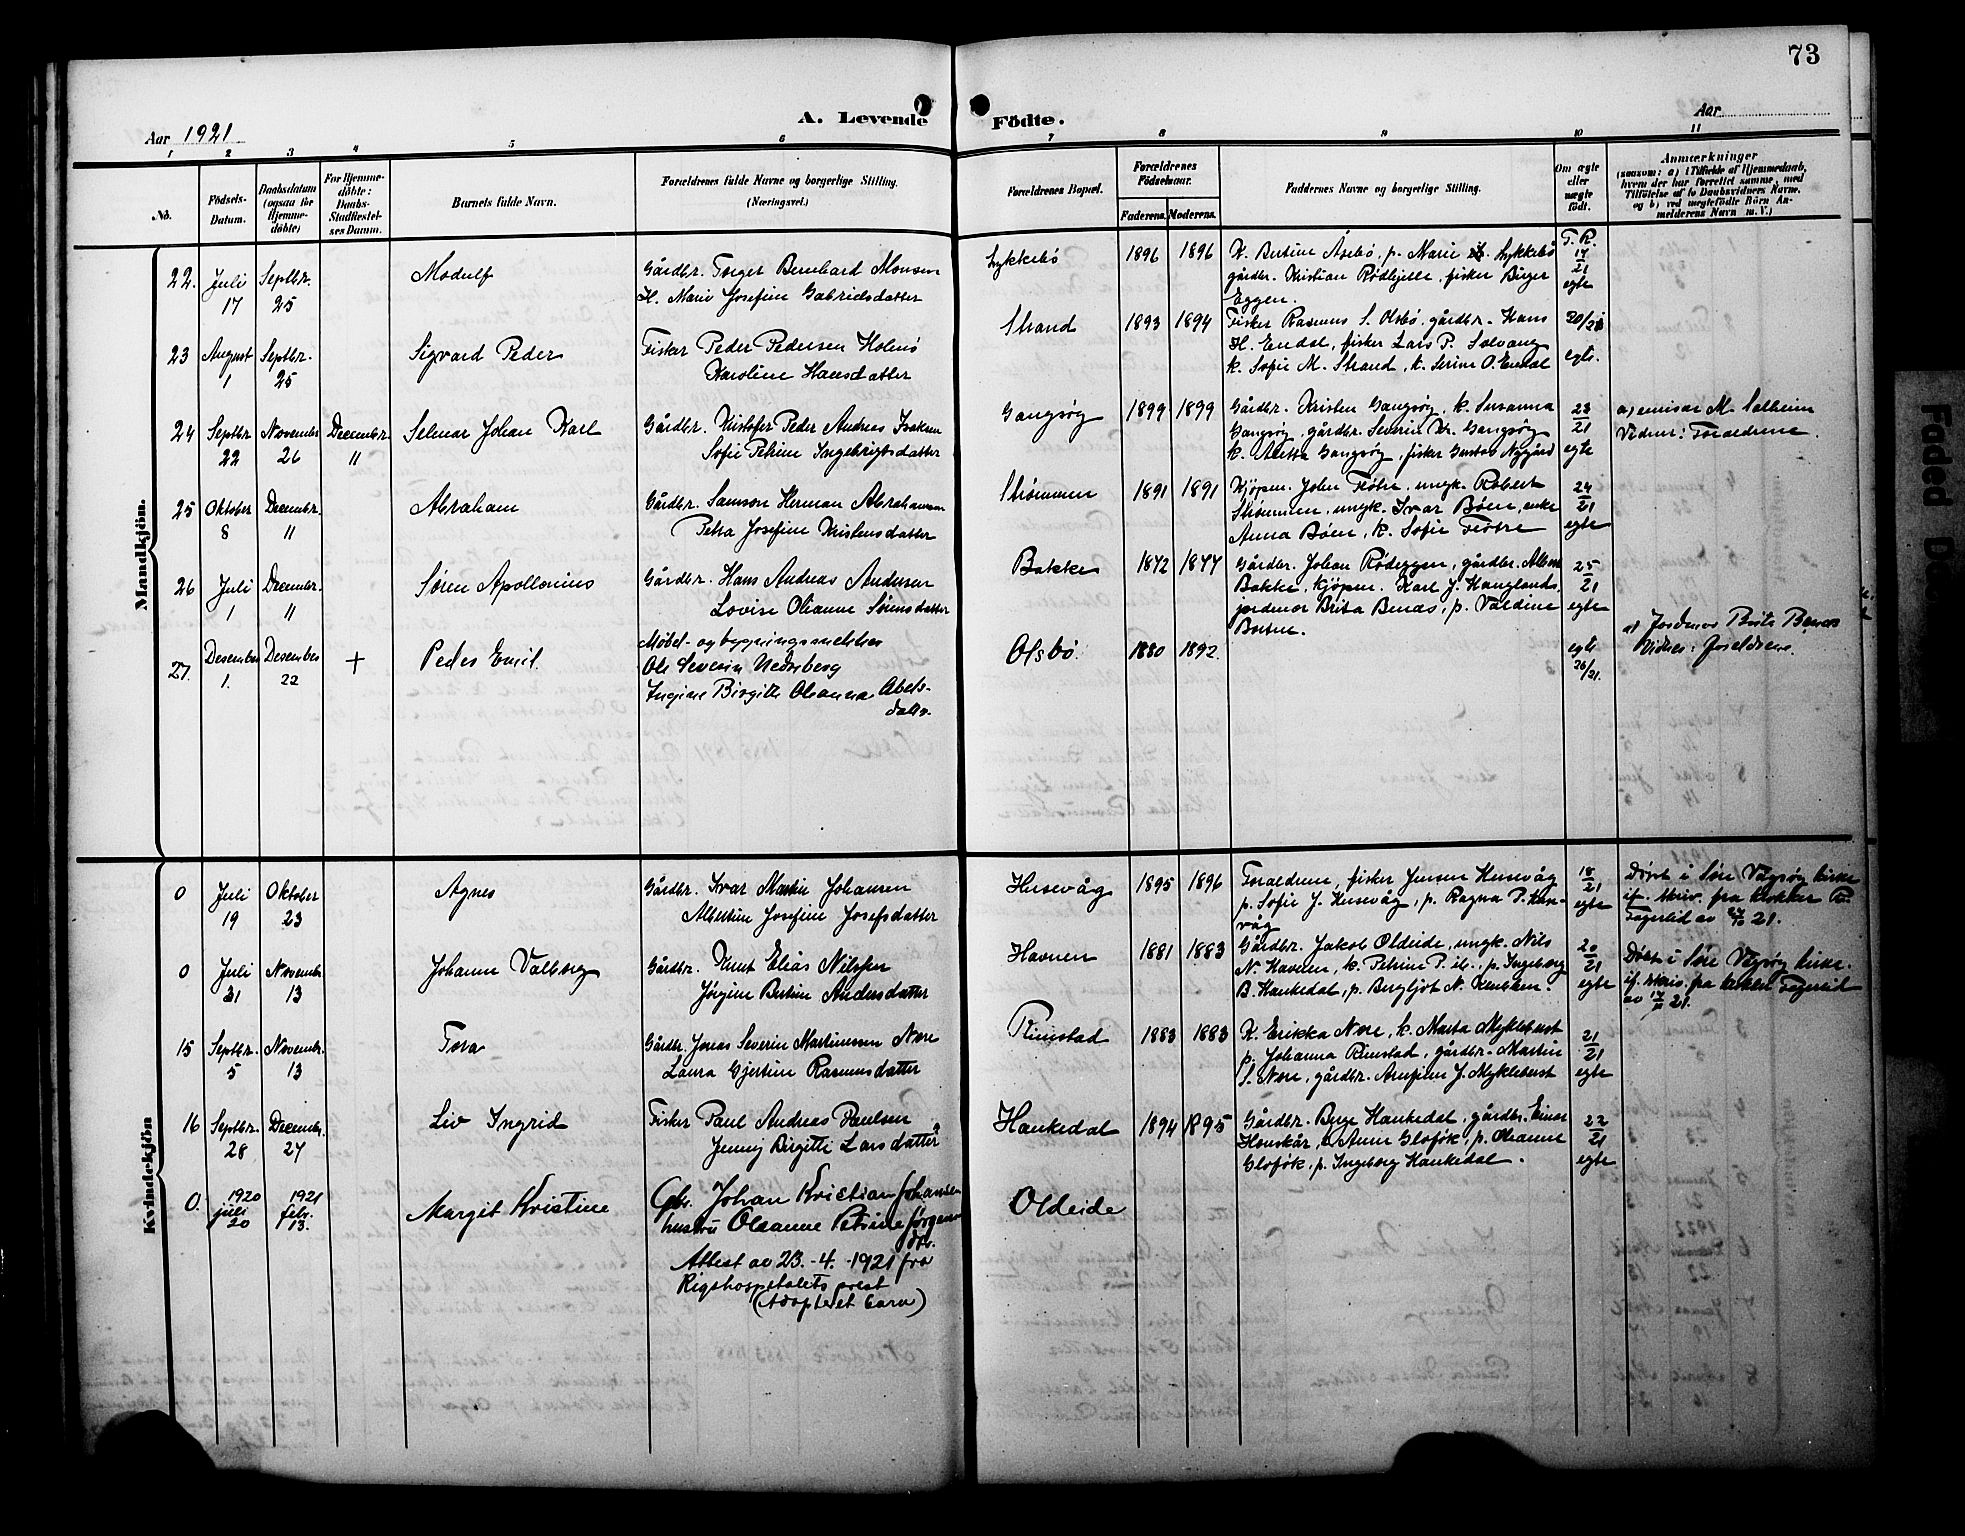 73
Aar 1921
A. Levende Födte.
Aar
1 2 3 4 5 6 7 8 9 10 11
No.
Födsels-
Datum.
Daabsdatum
(ogsaa for
Hjemme-
döbte)
For Hjemme-
döbte:
Daabs-
Stadfæstel-
ses Datum.
Barnets fulde Navn.
Forældrenes fulde Navne og borgerlige Stilling.
(Næringsvei.)
Forældrenes Bopæl.
Forældrenes
Födselsaar.
Faderens. Moderens.
Faddernes Navne og borgerlige Stilling.
Om ægte
eller
uægte
födt.
Anmærkninger
(saasom: a) i Tilfælde af Hjemmedaab,
hvem der har forrettet samme, med
Tilföielse af to Daabsvidners Navne,
og b) ved uægtefödte Börn An-
melderens Navn m. V.)
Mandkjön.
22. Juli 17 Septbr. 25 Modulf
Gårdbr. Torger Bernhard Monsen
H. Marie Josefine Gabrielsdatter
Lykkebö 1896 1896
K. Bertine Åsebö, p. Marie Lykkebö
gårdbr. Kristian Rödhjelle, fisker Birger
Eggen.
T. R. 17/21 egte
23 August 1 Septbr. 25 Sigvard Peder
Fisker Peder Pedersen Holmö
Karoline Hansdatter
Strand 1893 1894
Fisker Rasmus S. Olsbö, gårdbr. Hans
H. Endal, fisker Lars P. Solvang
k. Sofie M. Strand, k. Serine O. Endal
20/21 egte.
24 Septbr 22 November 26 Decembr. 11 Selmar Johan Karl
Gårdbr. Kristofer Peder Andreas Isaksen
Sofie Petrine Ingebrigtsdatter
Gangsøy 1899 1899
Gårdbr. Kristen Gangsøy, k. Susanna
Gangsøy, gårdbr. Severin Kr. Gangsøy
k. Aletta Gangsøy, fisker Gustav Nygård
23/21 egte
a) emisær M. Solheim
Vidner: Foreldrene.
25 Oktober 8 Decembr. 11 Abraham
Gårdbr. Samson Herman Abrahamsen
Petra Josefine Kristensdatter
Strömmen 1891 1891
Kjöpm. John Flötre, ungk. Robert
Strömmen, ungk. Ivar Böen, enke
Anna Böen, k. Sofie Flötre
24/21 egte
26 Juli 1 Decembr. 11 Søren Apollonius
Gårdbr. Hans Andreas Andersen
Lovise Olianne Sörensdatter
Bakke 1872 1877
Gårdbr. Johan Rödeggen, gårdbr.
Bakke, kjöpm. Karl J. Hauglands,
jordmor Brita Benæs, p. Valdine
25/21 egte
27. Desember 1. Desember 22 + Peder Emil.
Møbel- og bygningssnekker
Ole Severin Nedreberg
Ingine Birgitte Oleanna Abels-
datter.
Olsbø 1880 1892.
egte 26/21.
a) Jordmor Brita Benæs
Vidner: foreldrene.
Kvindekjön
0 Juli 19 Oktober 23 Agnes
Gårdbr. Ivar Martin Johansen
Albertine Josefine Josefsdatter
Husevåg 1895 1896
Foreldrene, fisker Jensen Husevåg
p. Sofie J. Husevåg, p. Ragna P. Huse-
våg
18/21 egte
Döpt i Söre Vågsöy kirke
if. skriv. fra klokker R.
Fagerlid av 24/10 21.
0 Juli 31 Novembr. 13 Johanne Valborg
Gårdbr. Knut Elias Nilssen
Jørgine Bertine Andersdatter
Havnen 1881 1883
Gårdbr. Jakob Oldeide, ungk. Nils
N. Havnen, k. Petrine P. ib., p. Ingeborg
B. Haukedal, p. Bergljot N. Knutsen.
20/21 egte
Döpt i Söre Vågsöy kirke.
if. skriv. fra klokker Fagerlid
av 17/11 21.
15 Septbr. 5 Novembr. 13 Tora
Gårdbr. Jonas Severin Martinussen Nore
Laura Gjertine Rasmusdatter
Rimstad 1883 1883
K. Erikka Nore, k. Marta Myklebust
p. Johanna Rimstad, gårdbr. Martin
S. Nore, gårdbr. Arnfinn J. Myklebust
21/21 egte
16 Septbr. 28 Decembr. 27 Liv Ingrid
Fisker Paul Andreas Paulsen
Jenny Birgitte Larsdatter
Haukedal 1894 1895
Gårdbr. Berge Haukedal, gårdbr. Einar
Henskår, Anne Gloføk, p. Oleanne
Gloføk, p. Ingeborg Haukedal.
22/21 egte
0. 1920 juli 20 1921 febr. 13. Margit Kristine
Gbr. Johan Kristian Johansen
hustru Oleanne Petrine Jørgens-
dtr.
Attest av 23.-4.-1921 fra
Rigshospitalets prest
(Adopteret barn)
Oldeide
Faded